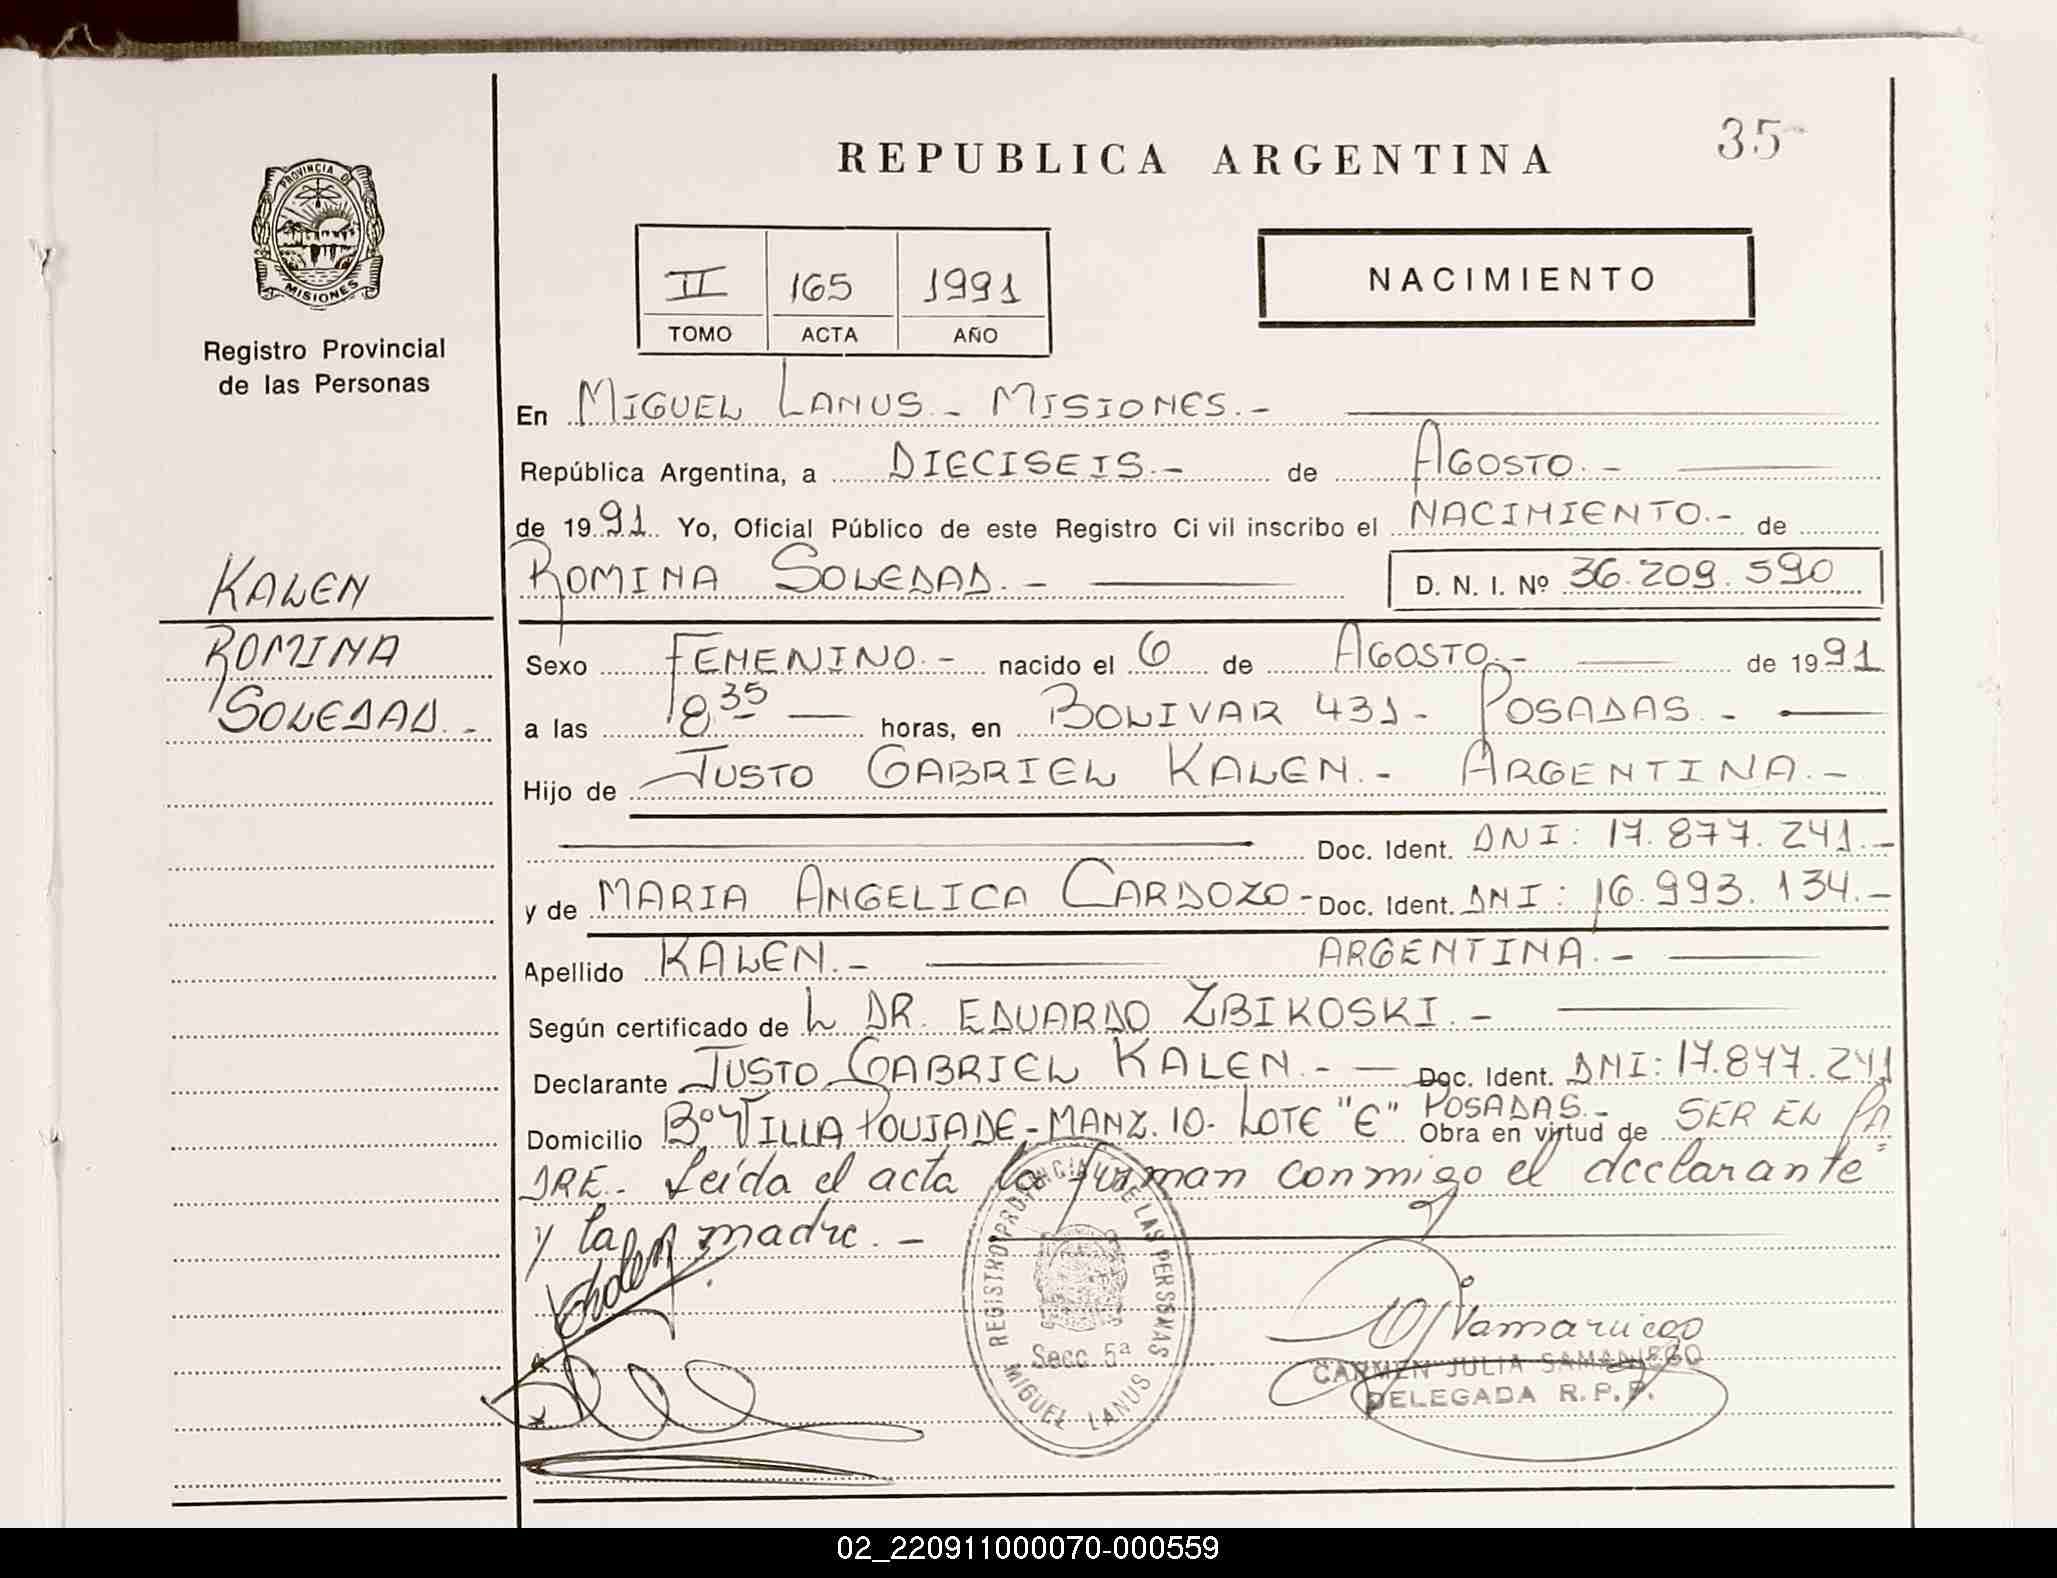 35
REPUBLICA ARGENTINA
PROVINCIA DE
MISIONES
Registro Provincial
de las Personas
II 165 1991
TOMO ACTA AÑO
NACIMIENTO
En MIGUEL LANUS.- MISIONES.-
República Argentina, a DIECISEIS.- de AGOSTO.-
de 1991. Yo, Oficial Público de este Registro Civil inscribo el NACIMIENTO.- de
KALEN
ROMINA SOLEDAD.- D. N. I. Nº 36.209.590
ROMINA
Sexo FEMENINO.- nacido el 6 de AGOSTO.- de 1991
SOLEDAD.-
a las 8.35 horas, en BOLIVAR 431- POSADAS.-
Hijo de JUSTO GABRIEL KALEN.- ARGENTINA.-
Doc. Ident. DNI: 17.877.241.-
y de MARIA ANGELICA CARDOZO- Doc. Ident. DNI: 16.993.134.-
Apellido KALEN.- ARGENTINA.-
Según certificado de L DR. EDUARDO ZBIKOSKI.-
Declarante JUSTO GABRIEL KALEN.- Doc. Ident. DNI: 17.877.241
Domicilio Bº VILLA POUJADE-MANZ. 10- LOTE "E" POSADAS.- Obra en virtud de SER EL PA
DRE.- Leída el acta la firman conmigo el declarante
y la madre.-
REGISTRO PROVINCIAL DE LAS PERSONAS
Secc 5ª
MIGUEL LANUS
CARMEN JULIA SAMANIEGO
DELEGADA R.P.P.
02_220911000070-000559